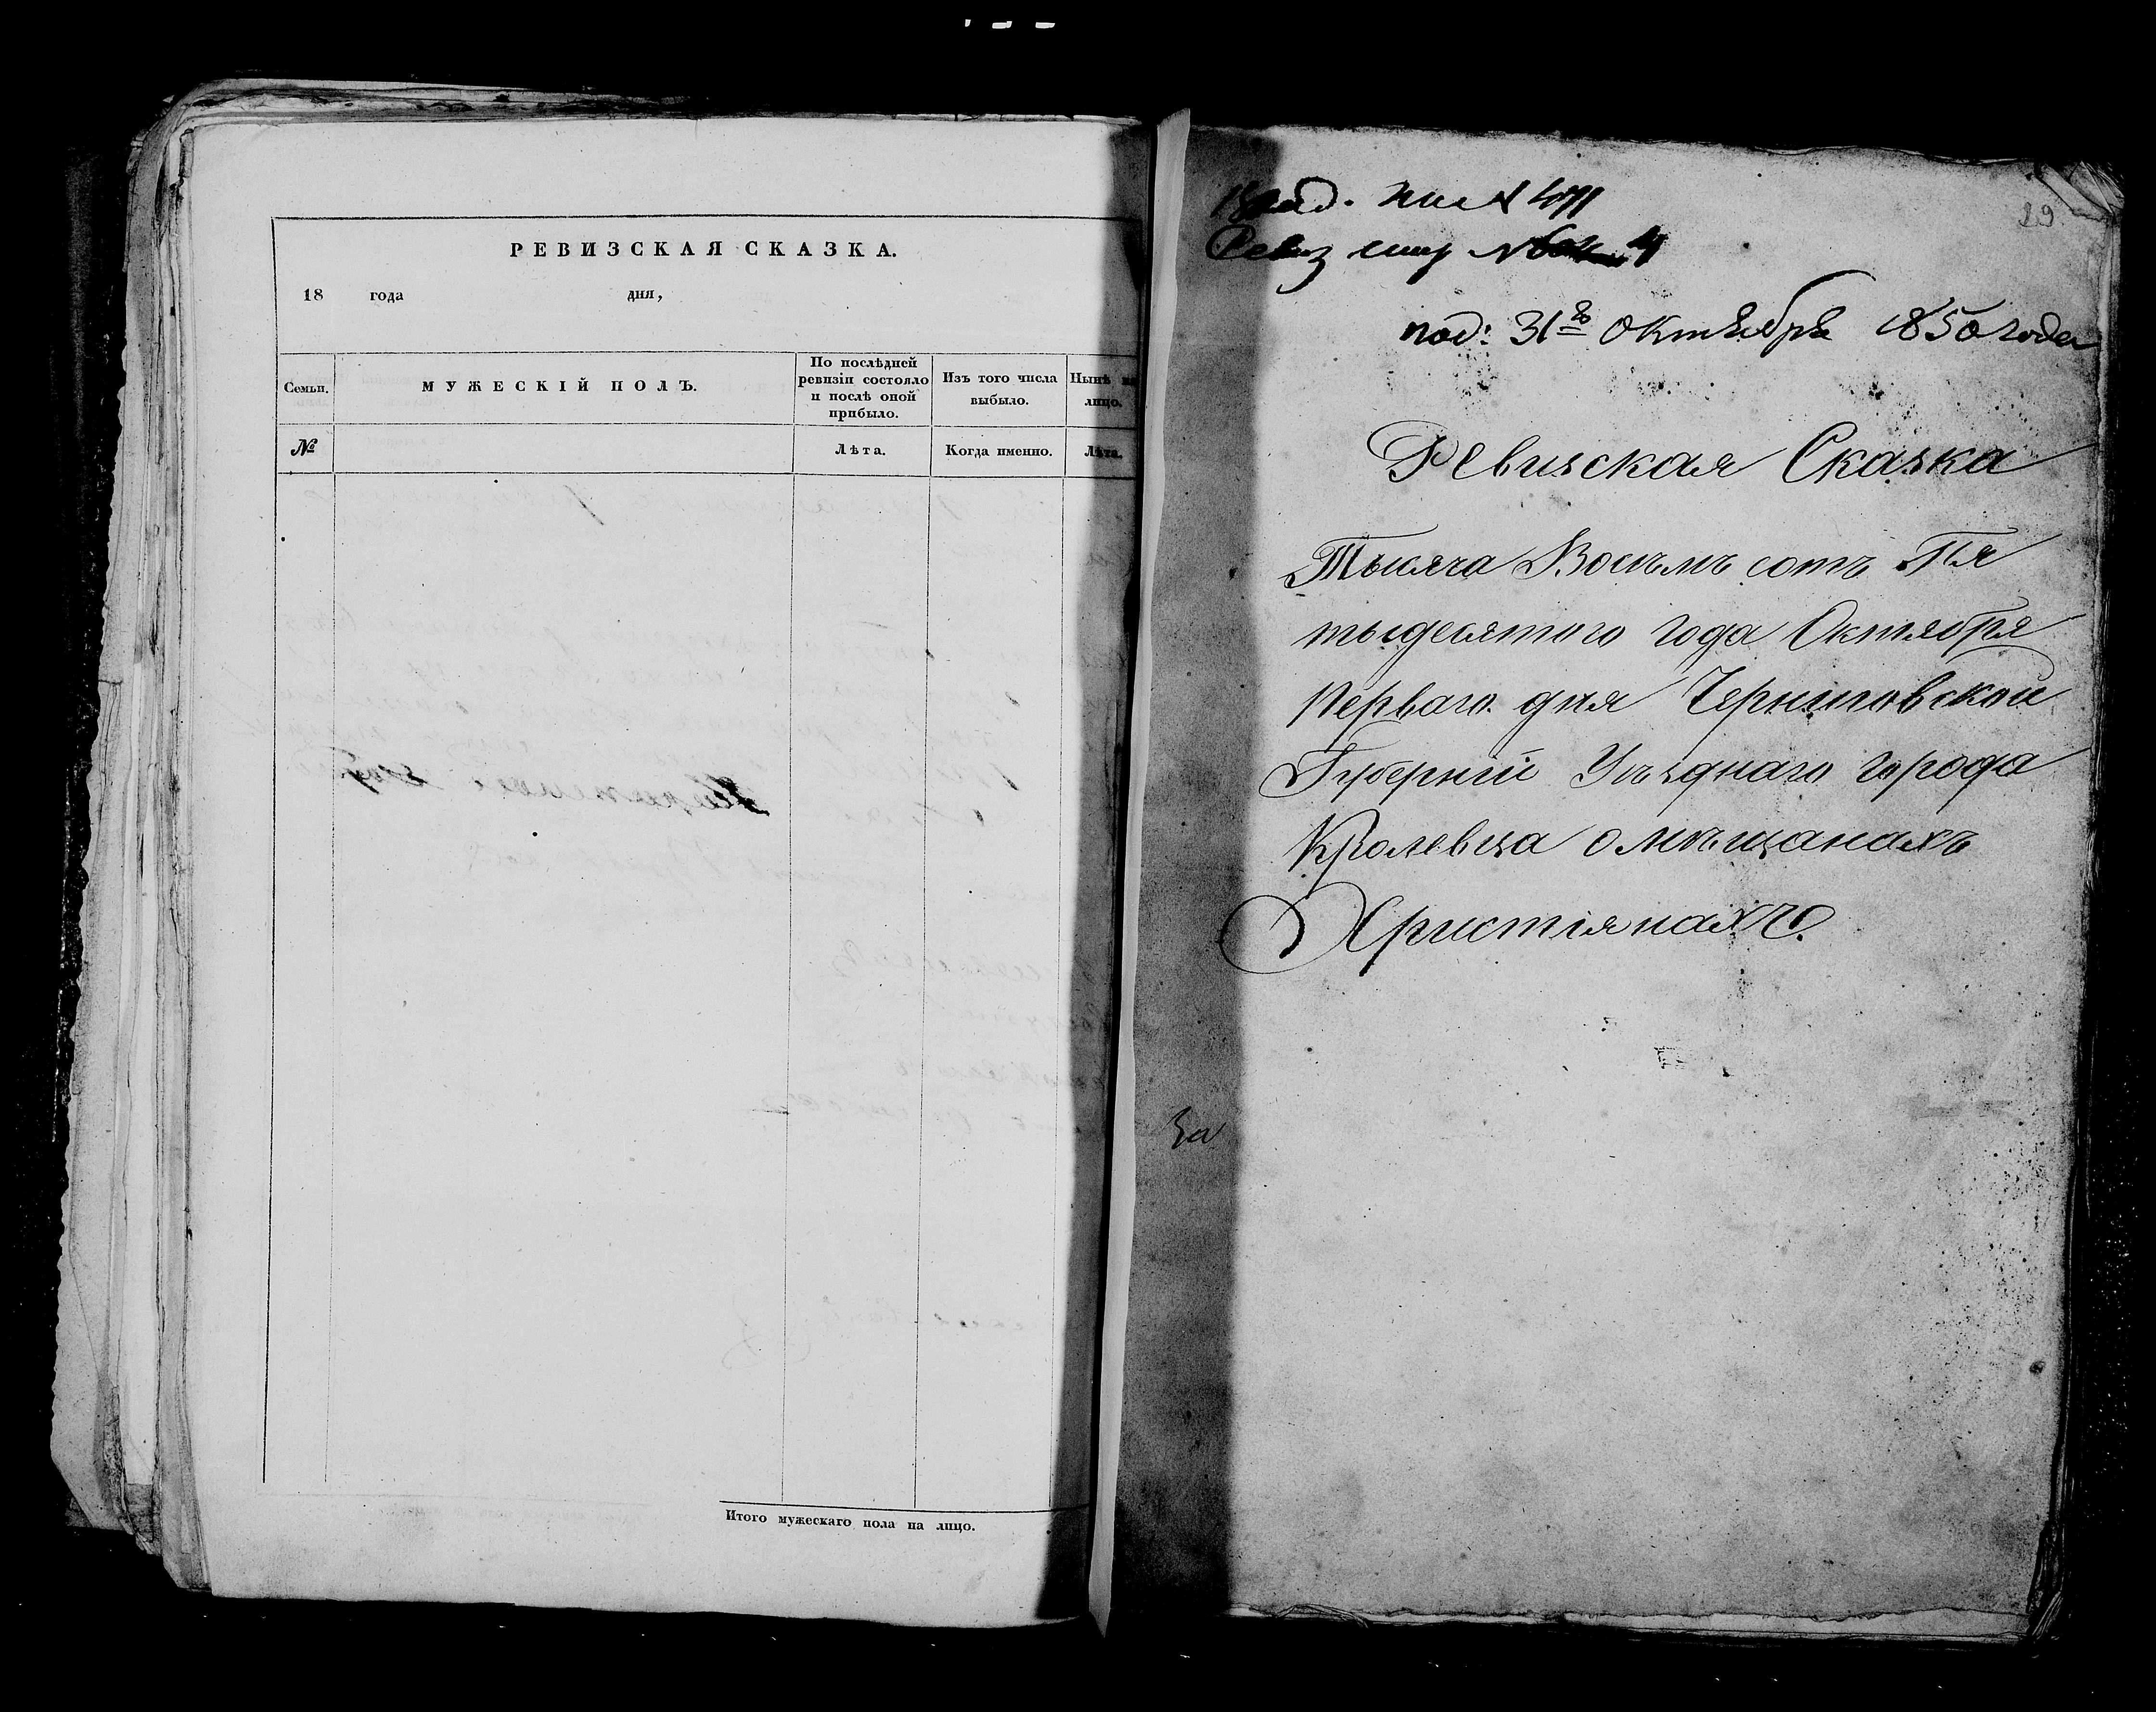 РЕВИЗСКАЯ СКАЗКА.
18 года дня,
Семьи.
МУЖЕСКІЙ ПОЛЪ.
По послѣдней
ревизіи состояло
и послѣ оной
прибыло.
Изъ того числа
выбыло.
Нынѣ на
лицо.
№
Лѣта.
Когда именно.
Лѣта.
Итого мужескаго пола на лицо.
29
№ 4
под: 31го Октября 1850 года
Ревизская Сказка
Тысяча Восемь сотъ Пя
тьдесятого года Октября
Перваго дня Черниговской
Губерніи Уѣзднаго города
Кролевца о мѣщанахъ
Христіянахъ.
За